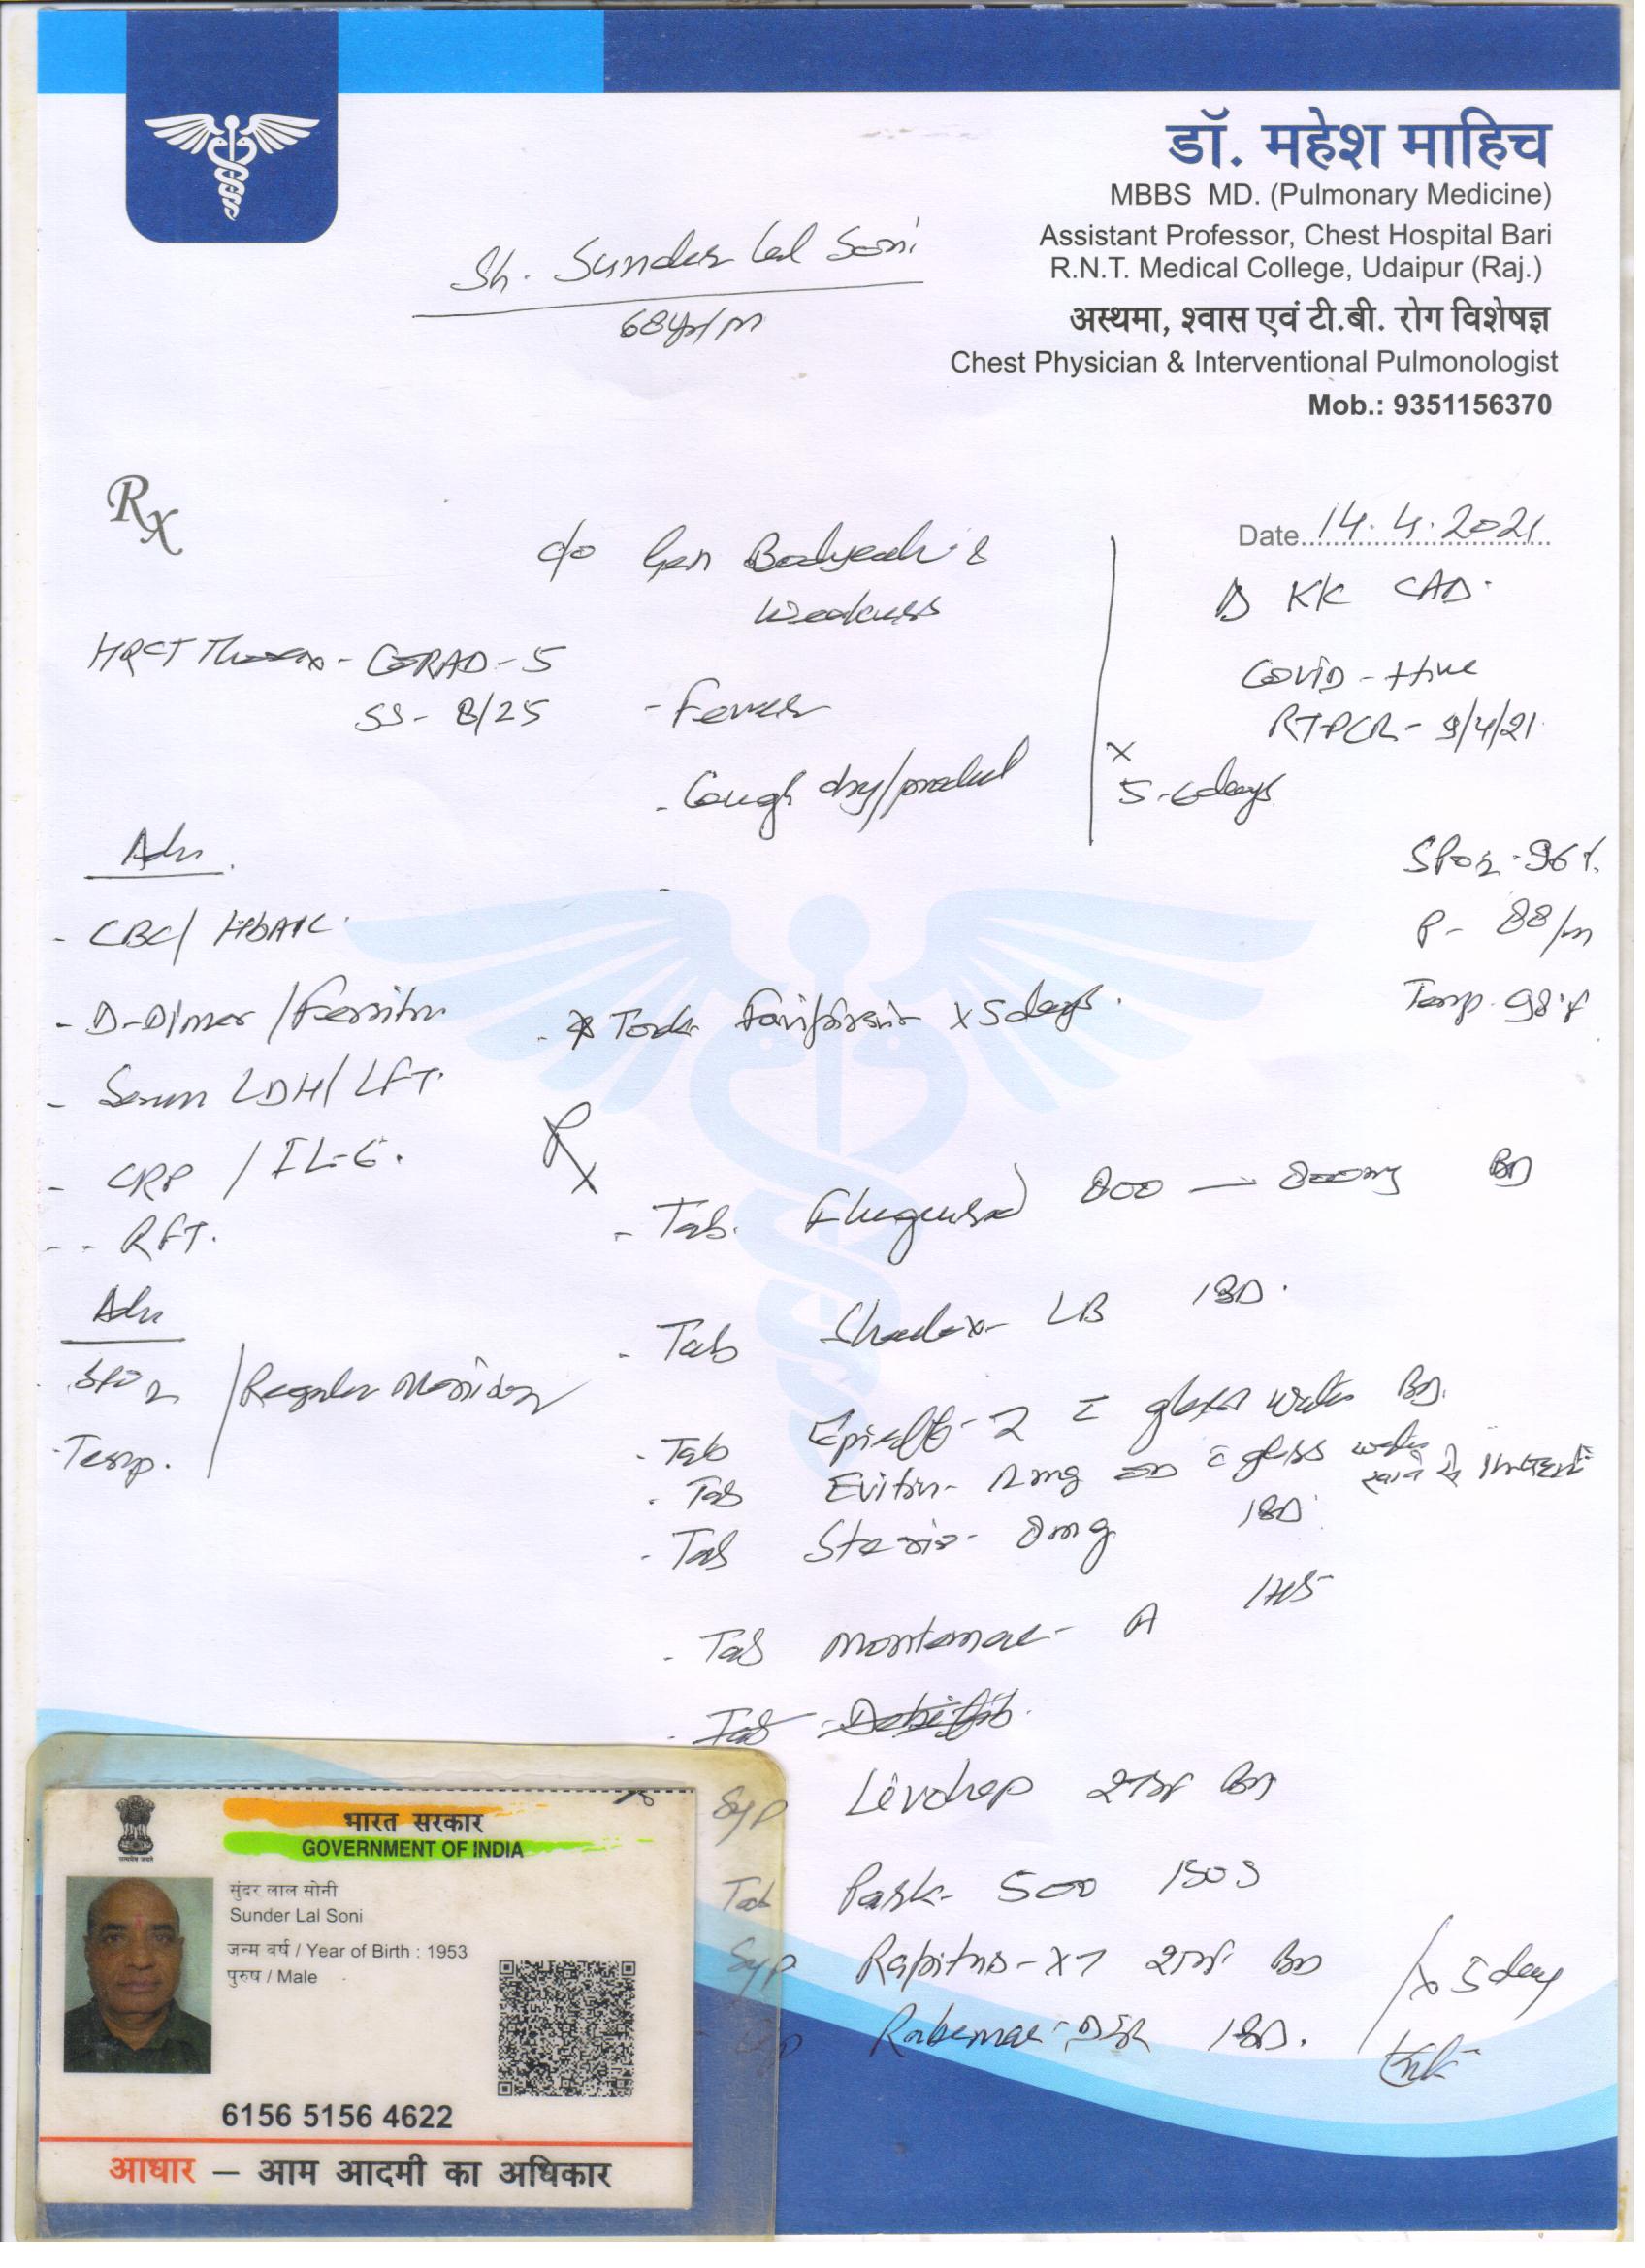 डॉ. महेश माहिच
MBBS MD. (Pulmonary Medicine)
Assistant Professor, Chest Hospital Bari
R.N.T. Medical College, Udaipur (Raj.)
अस्थमा, श्वास एवं टी.बी. रोग विशेषज्ञ
Chest Physician & Interventional Pulmonologist
Mob.: 9351156370
Sh. Sunder Lal Soni
68yr/m
Rx
Date 14.4.2021
c/o Gen Bodyache &
Weakness
K/c CAD
HRCT Thorax - CORAD - 5
SS - 8/25
- Fever
- Cough dry/
x
5-6 days
Covid - +ive
RTPCR - 9/4/21
SPO2 - 96%
P - 88/m
Temp. 98°f
Adv.
- CBC/ HbA1C
- D-Dimer / Ferritin
- Serum LDH/ LFT.
- CRP / IL-6.
- RFT.
Adv
SPO2
Temp.
Regular Monitor
x 5 days
Rx
- Tab. 800 — 800mg BD
- Tab LB 1BD
- Tab glass water BD
- Tab 12mg glass water
- Tab 8mg 1BD
- Tab Montemac - A 1HS
- Tab
Syp 2TSF BD
Tab 500 1SOS
Syp 2TSF BD
Rabemac - DSR 1BD.
x 5 day
भारत सरकार
GOVERNMENT OF INDIA
सुंदर लाल सोनी
Sunder Lal Soni
जन्म वर्ष / Year of Birth : 1953
पुरुष / Male
6156 5156 4622
आधार – आम आदमी का अधिकार